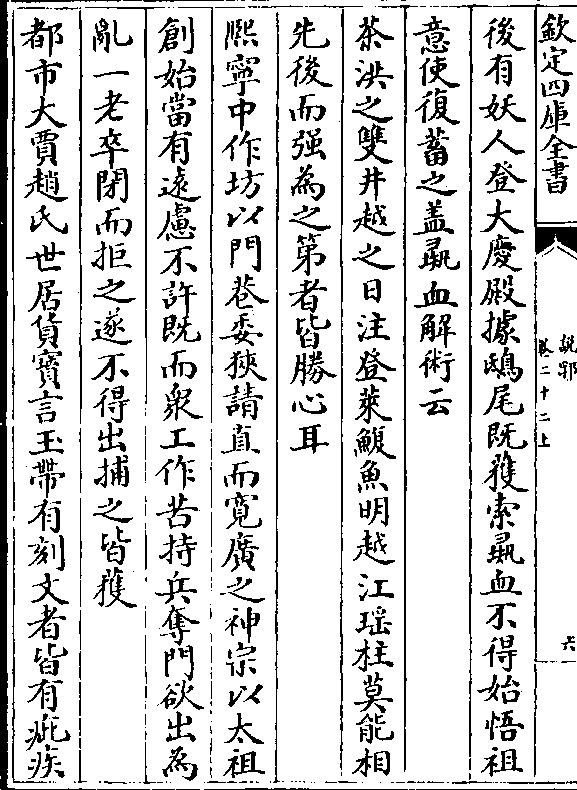 欽定四庫全書
說郛
卷二十二上
六
後有妖人登大慶殿據鴟尾既獲索彘血不得始悟祖
意使復蓄之盖彘血解術云
茶洪之雙井越之日注登萊鰒魚明越江瑶柱莫能相
先後而强為之第者皆勝心耳
熙寧中作坊以門巷委狹請直而寛廣之神宗以太祖
創始當有逺慮不許既而衆工作苦持兵奪門欲出為
亂一老卒閉而拒之遂不得出捕之皆獲
都市大賈趙氏世居貨寳言玉帶有刻文者皆有疵疾